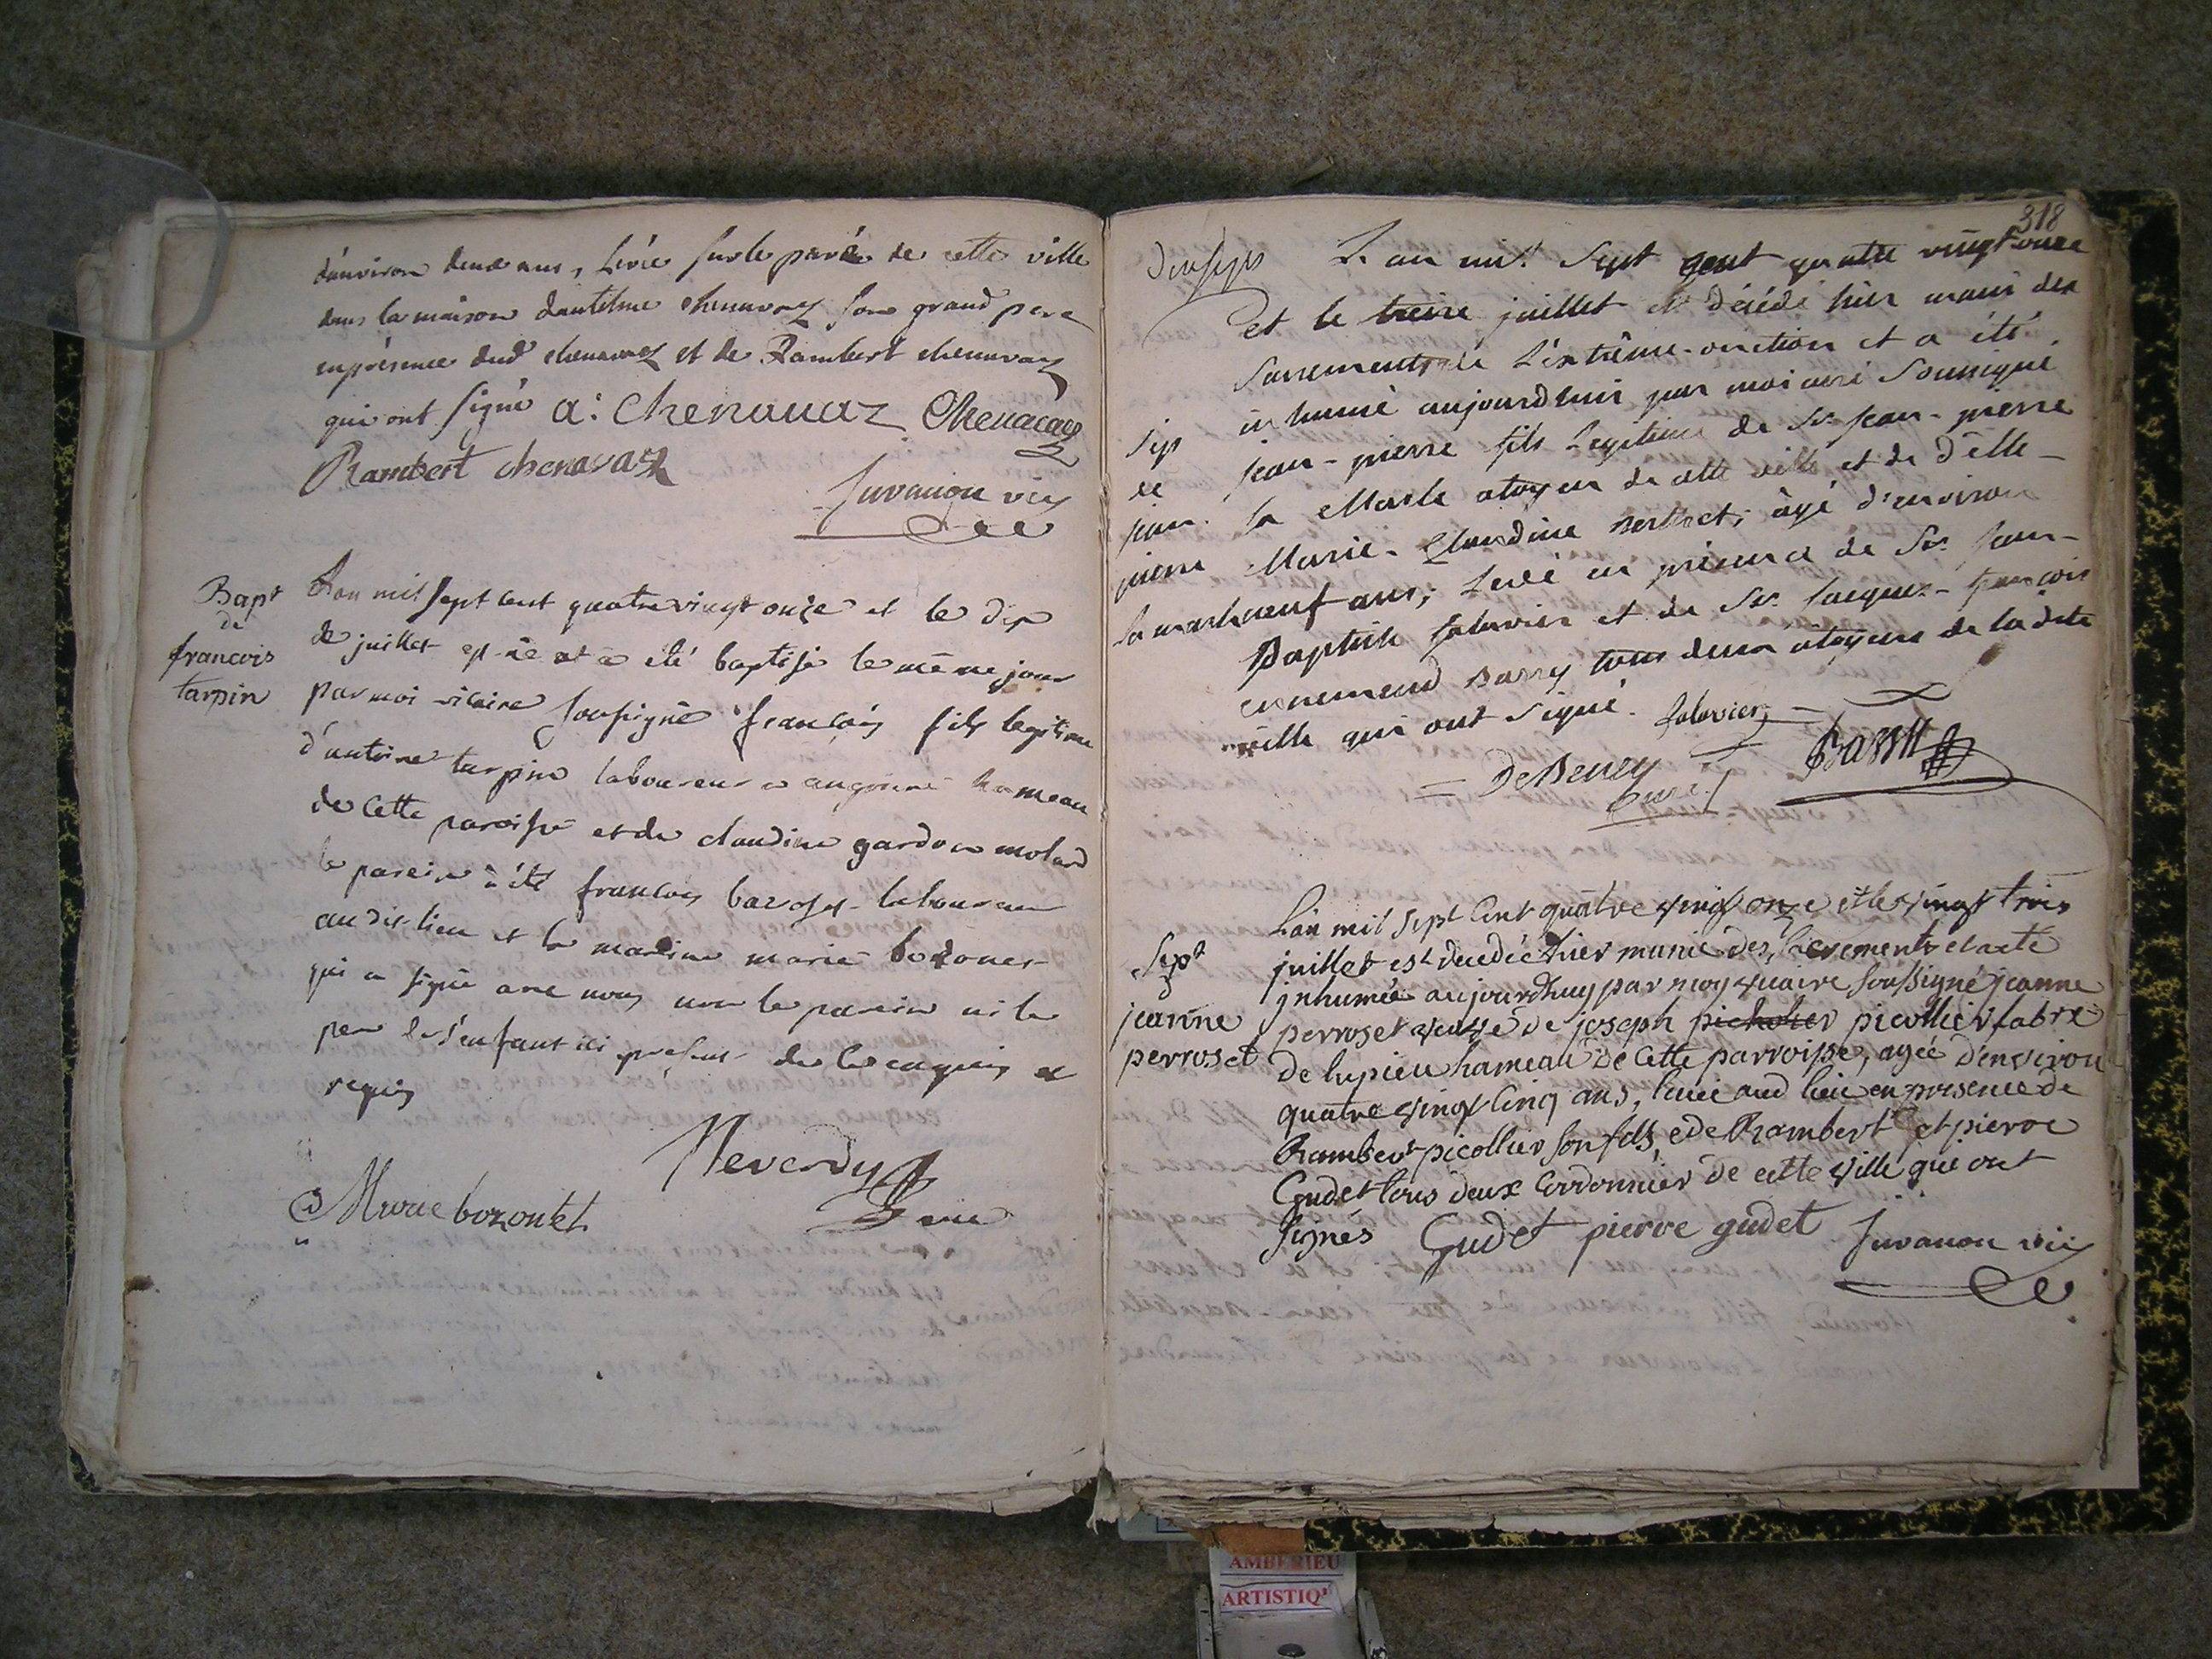 d'environ deux ans, levée sur le pavée de cette ville
dans la maison dantelme chenavaz son grand pere
en présence dud chenavaz et de Rambert chenavaz
qui ont signé a: chenauaz Chenavaz
Rambert chenavaz
Juvanon vic
Bapt
de
francois
tarpin
L'an mil sept cent quatre vingt onze et le dix
de juillet est né et a été baptisé le même jour
par moi vicaire soussigné francois fils legitime
d'antoine tarpin laboureur a hameau
de cette paroisse et de claudine gardon molard
le parein a été francois laboureur
au dit lieu et la mareine marie bozonet
qui a signé avec nous non le parein ni le
pere de l'enfant ici présent de ce enquis et
requis
Marie bozonet
Reverdy
vicaire
318
L'an mil sept cent quatre vingt onze
et le treize juillet est décédé hier muni des
sacrements de l'extrême-onction et a été
inhumé aujourdhui par moi curé soussigné
Sep
de
jean
pierre
la marle
jean-pierre fils légitime de Sr jean-pierre
la Marle citoyen de cette ville et de delle
Marie-Claudine âgé d'environ
neuf ans; levé en présence de Sr jean-
Baptiste salavier et de Sr jacques-françois
ennemend Barry tous deux citoyens de la dite
ville qui ont signé. Salavier
DeBeney
curé
Barry
Sept
d
jeanne
perroset
L'an mil sept cent quatre vingt onze et le vingt trois
juillet est decedée hier munie des sacrements et a eté
jnhumée aujourdhuy par moy vicaire soussigné jeanne
perroset veuve de joseph picholier picollier fabre
de lupieu hameau de cette parroisse, agée d'environ
quatre vingt cinq ans, levée aud lieu en presence de
Rambert picollier son fils, e de Rambert et pierre
Gudet tous deux Cordonnier de cette ville qui ont
signés Gudet pierre gudet Juvanon vic
AMBERIEU
ARTISTIQ'